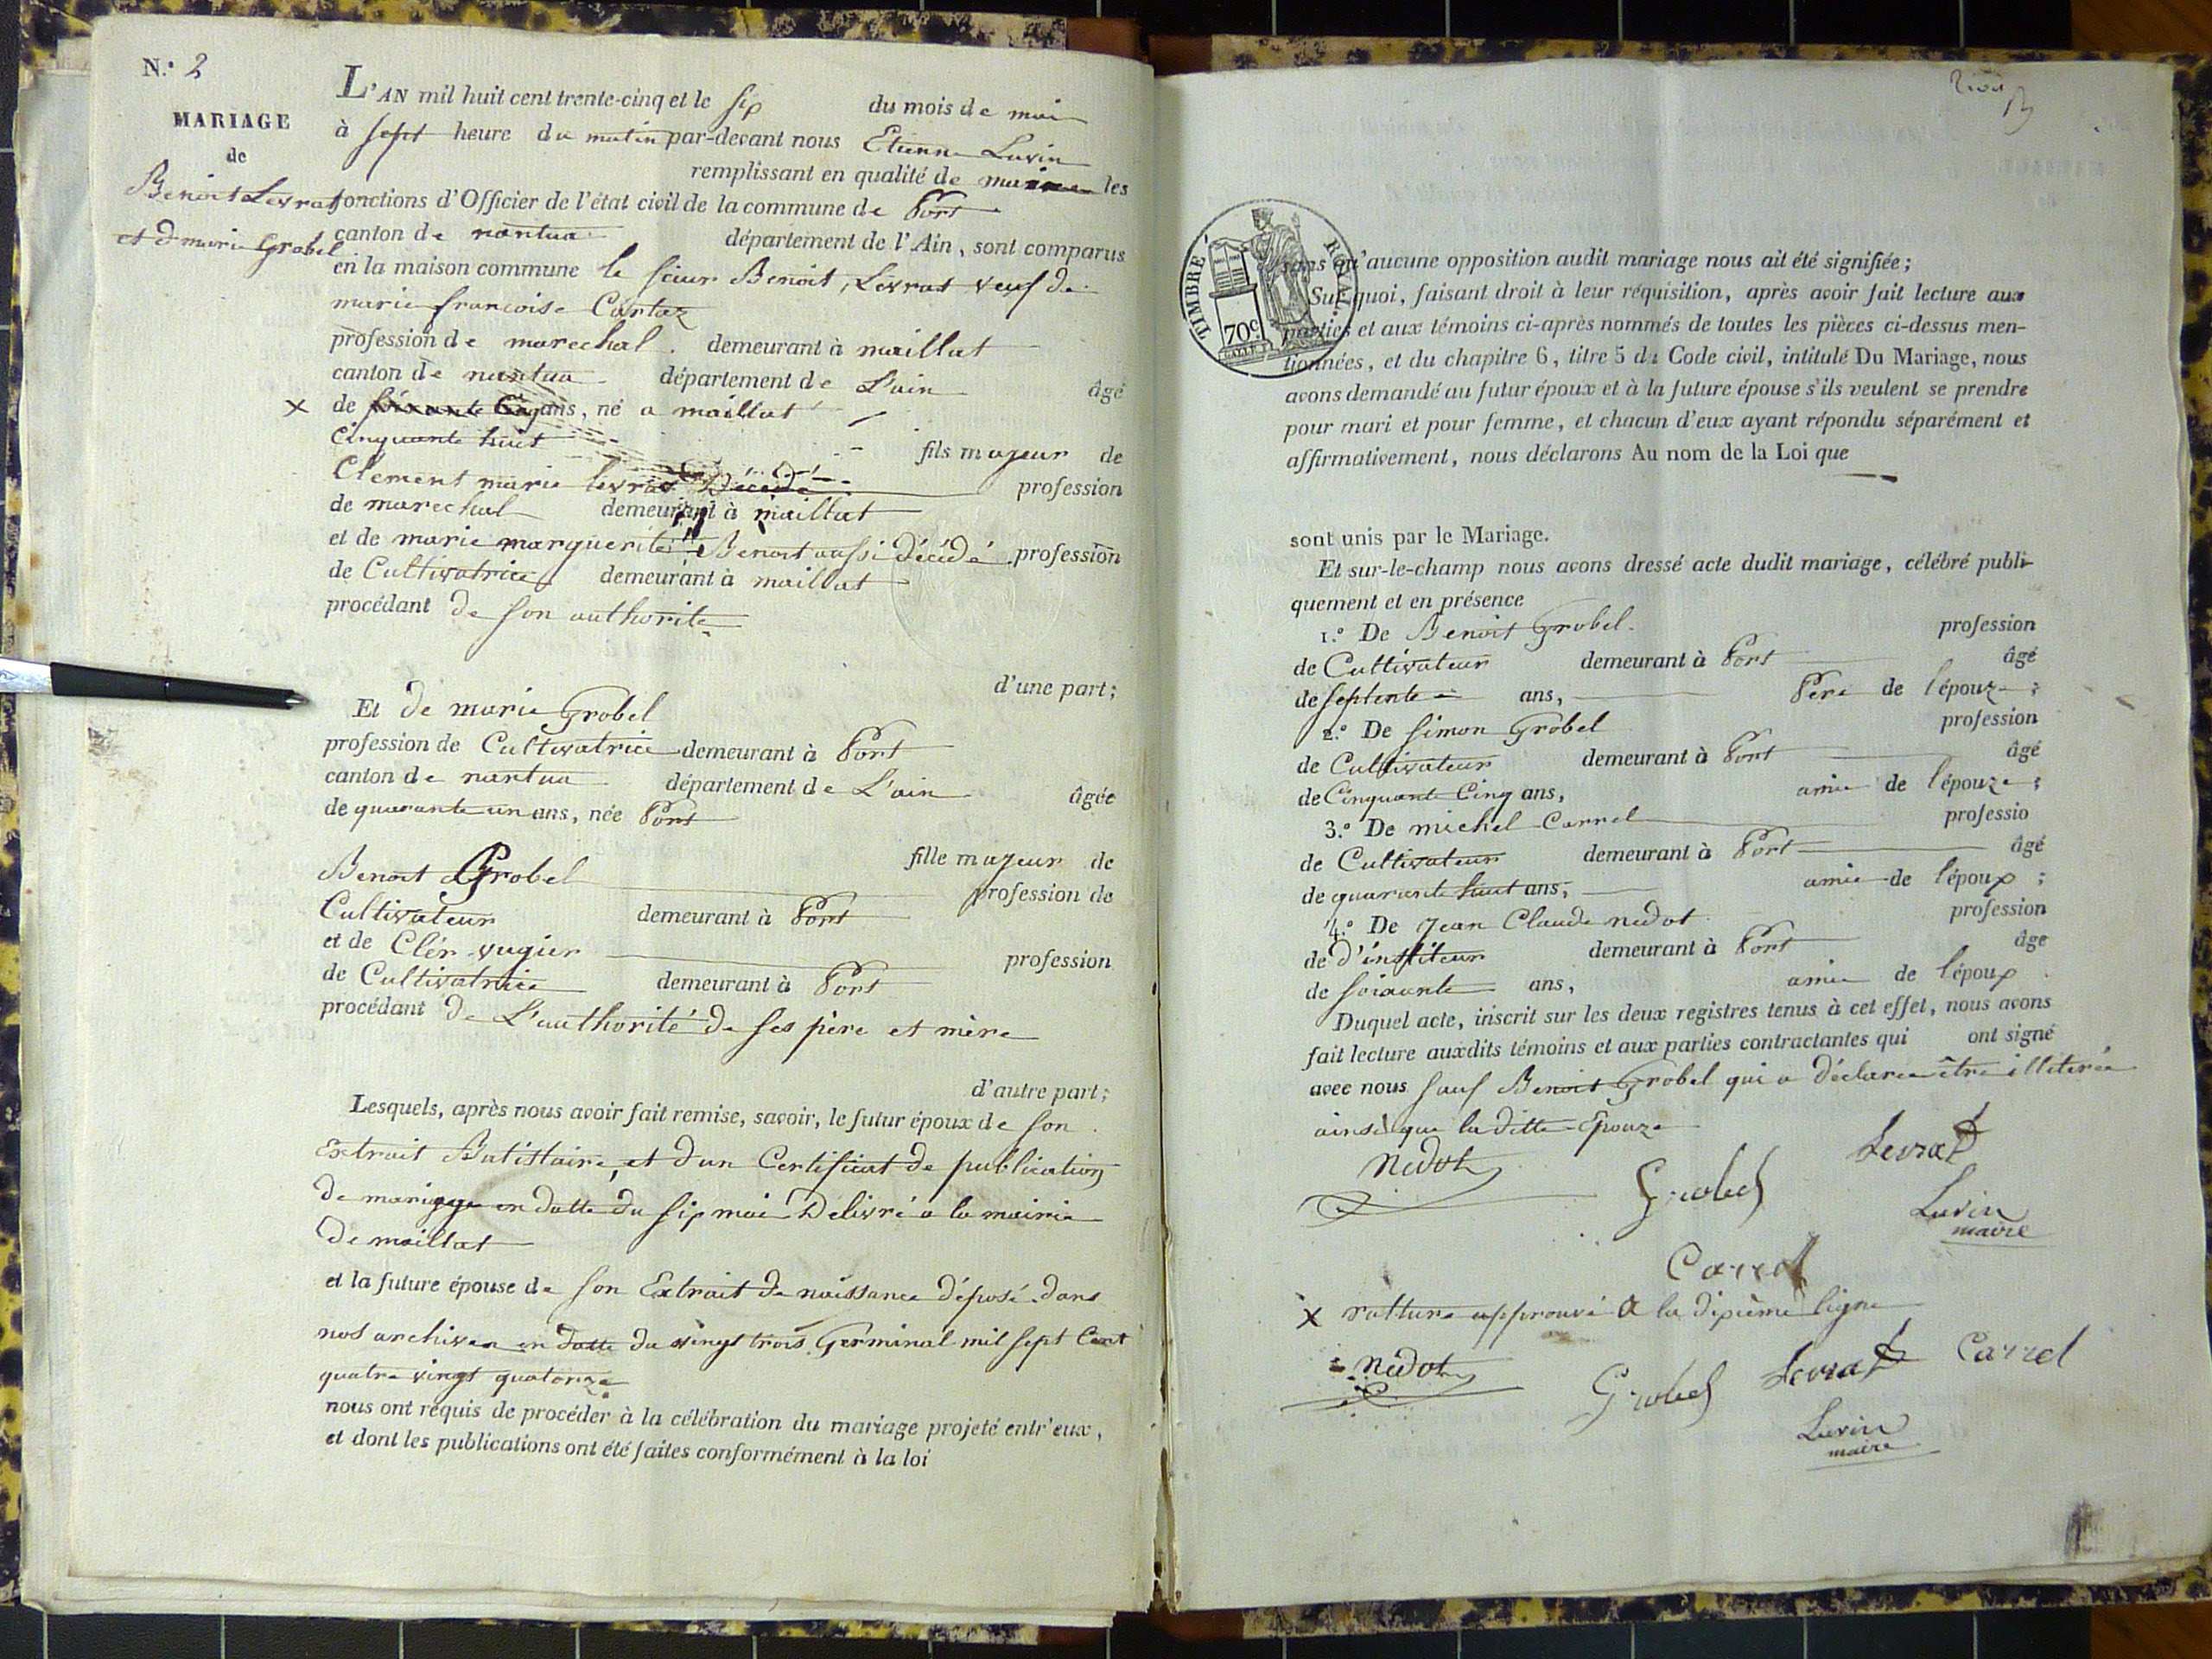 N.º 2
MARIAGE
de
Benoit Levrat
et d marie Grobel
L'AN mil huit cent trente-cinq et le six du mois de mai
à sept heure du matin par-devant nous Etienne Luvin
remplissant en qualité de maire les
fonctions d'Officier de l'état civil de la commune de Port
canton de nantua département de l'Ain, sont comparus
en la maison commune le sieur Benoit, Levrat veuf de
marie francoise Cartaz
profession de marechal. demeurant à maillat
canton de nantua département de L'ain âgé
x de soixante Cinq ans, né a maillat
Cinquante huit
fils majeur de
Clement marie levrat Décédé profession
de marechal demeurant à maillat
et de marie marguerite Benoit aussi décédé profession
de Cultivatrice demeurant à maillat
procédant de son authorite
d'une part;
Et de marie Grobel
profession de Cultivatrice demeurant à Port
canton de nantua département de L'ain âgée
de quarante un ans, née Port
fille majeur de
Benoit Grobel profession de
Cultivateur demeurant à Port
et de Clér vugier profession
de Cultivatrice demeurant à Port
procédant de L'authorité de ses père et mère
d'autre part;
Lesquels, après nous avoir fait remise, savoir, le futur époux de son
Extrait Batistaire, et dun Certificat de publication
de mariage en datte du six mai Delivré a la mairie
De maillat
et la future épouse de son Extrait de naissance déposé dans
nos archives en datte du vingt trois Germinal mil sept Cent
quatre vingt quatorze
nous ont requis de procéder à la célébration du mariage projeté entr'eux,
et dont les publications ont été faites conformément à la loi
TIMBRE ROYAL
70c
sans qu'aucune opposition audit mariage nous ait été signifiée;
Sur quoi, faisant droit à leur réquisition, après avoir fait lecture aux
parties et aux témoins ci-après nommés de toutes les pièces ci-dessus men-
tionnées, et du chapitre 6, titre 5 du Code civil, intitulé Du Mariage, nous
avons demandé au futur époux et à la future épouse s'ils veulent se prendre
pour mari et pour femme, et chacun d'eux ayant répondu séparément et
affirmativement, nous déclarons Au nom de la Loi que
sont unis par le Mariage.
Et sur-le-champ nous avons dressé acte dudit mariage, célébré publi-
quement et en présence
1.º De Benoit Grobel. profession
de Cultivateur demeurant à Port âgé
de septente ans, Père de l'épouze;
2.º De simon Grobel profession
de Cultivateur demeurant à Port âgé
de Cinquante Cinq ans, amie de l'épouze;
3.º De michel Carrel professio
de Cultivateur demeurant à Port âgé
de quarante huit ans, amie de l'époux;
4.º De Jean Claude nedot profession
de d'institeur demeurant à Port âge
de soixante ans, amie de l'époux.
Duquel acte, inscrit sur les deux registres tenus à cet effet, nous avons
fait lecture auxdits témoins et aux parties contractantes qui ont signé
avec nous sauf Benoit Grobel qui a déclaree être illeterée
ainsi que la ditte Epouze
Nedot Grobel Levrat
Luvin
maire
Carrel
x ratture approuvé a la dixième ligne
Nedot Grobel Levrat Carrel
Luvin
maire